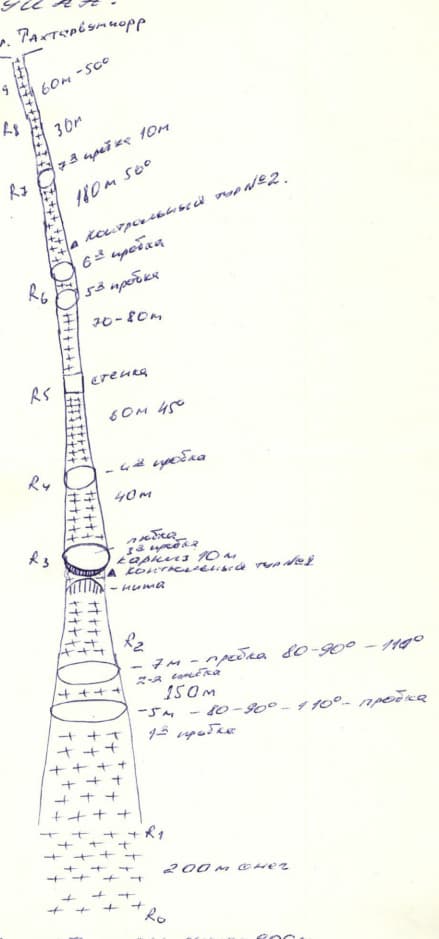 п. Тахтарвумчорр
60м-50°
R8
30м
7я пробка 10м
R7
180м 50°
контрольный тур №2.
6я пробка
R6
5я пробка
70-80м
стенка
R5
60м 45°
- 4я пробка
R4
40м
3я пробка
R3
карниз 10м
контрольный тур №1
R2
- 7м - пробка 80-90° - 110°
2-я пробка
150м
-5м - 80-90° - 110° - пробка
1я пробка
R1
200м снег
R0